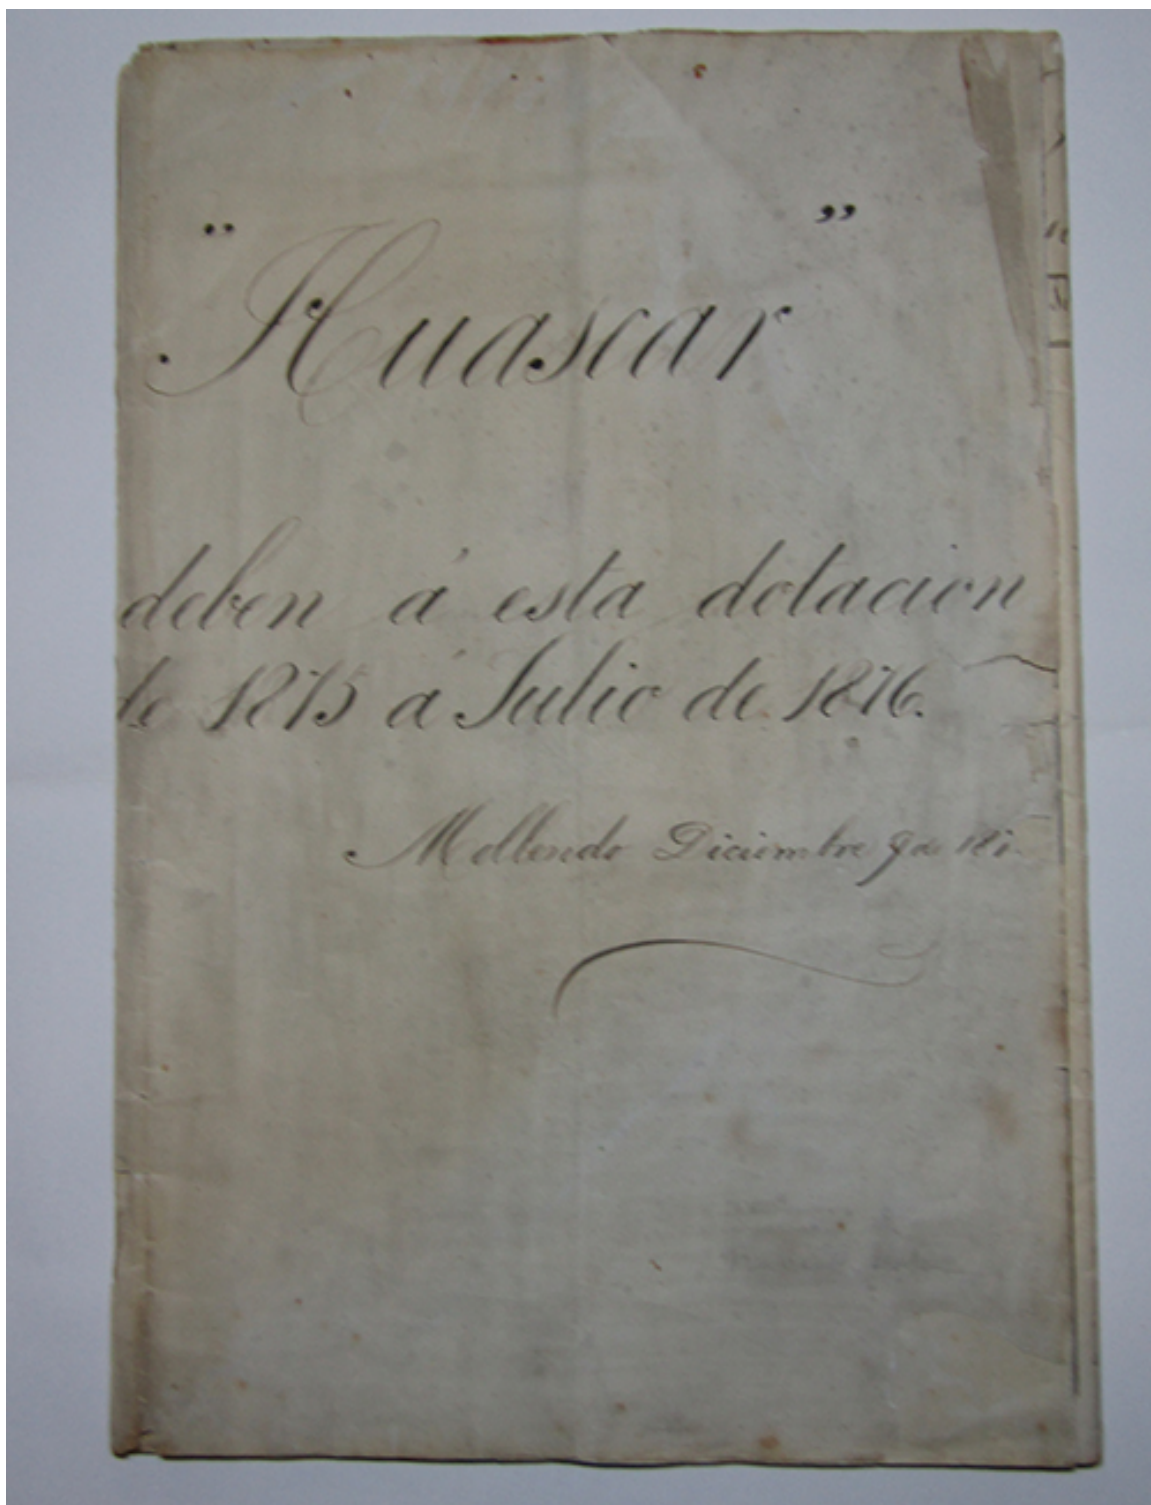 "Huascar"
deben á esta dotacion
de 1875 á Julio de 1876.
Mollendo Diciembre 9 de